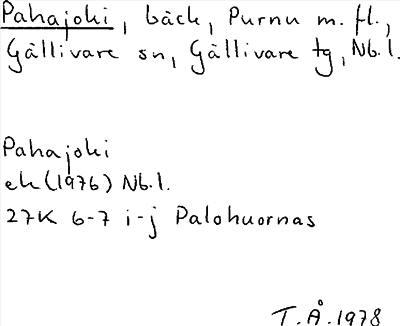 Pahajoki, bäck, Purnu m. fl.,
Gällivare sn, Gällivare tg, Nb.l.
Pahajoki
ek (1976) Nb.l.
27K 6-7 i-j Palohuornas
T.Å.1978